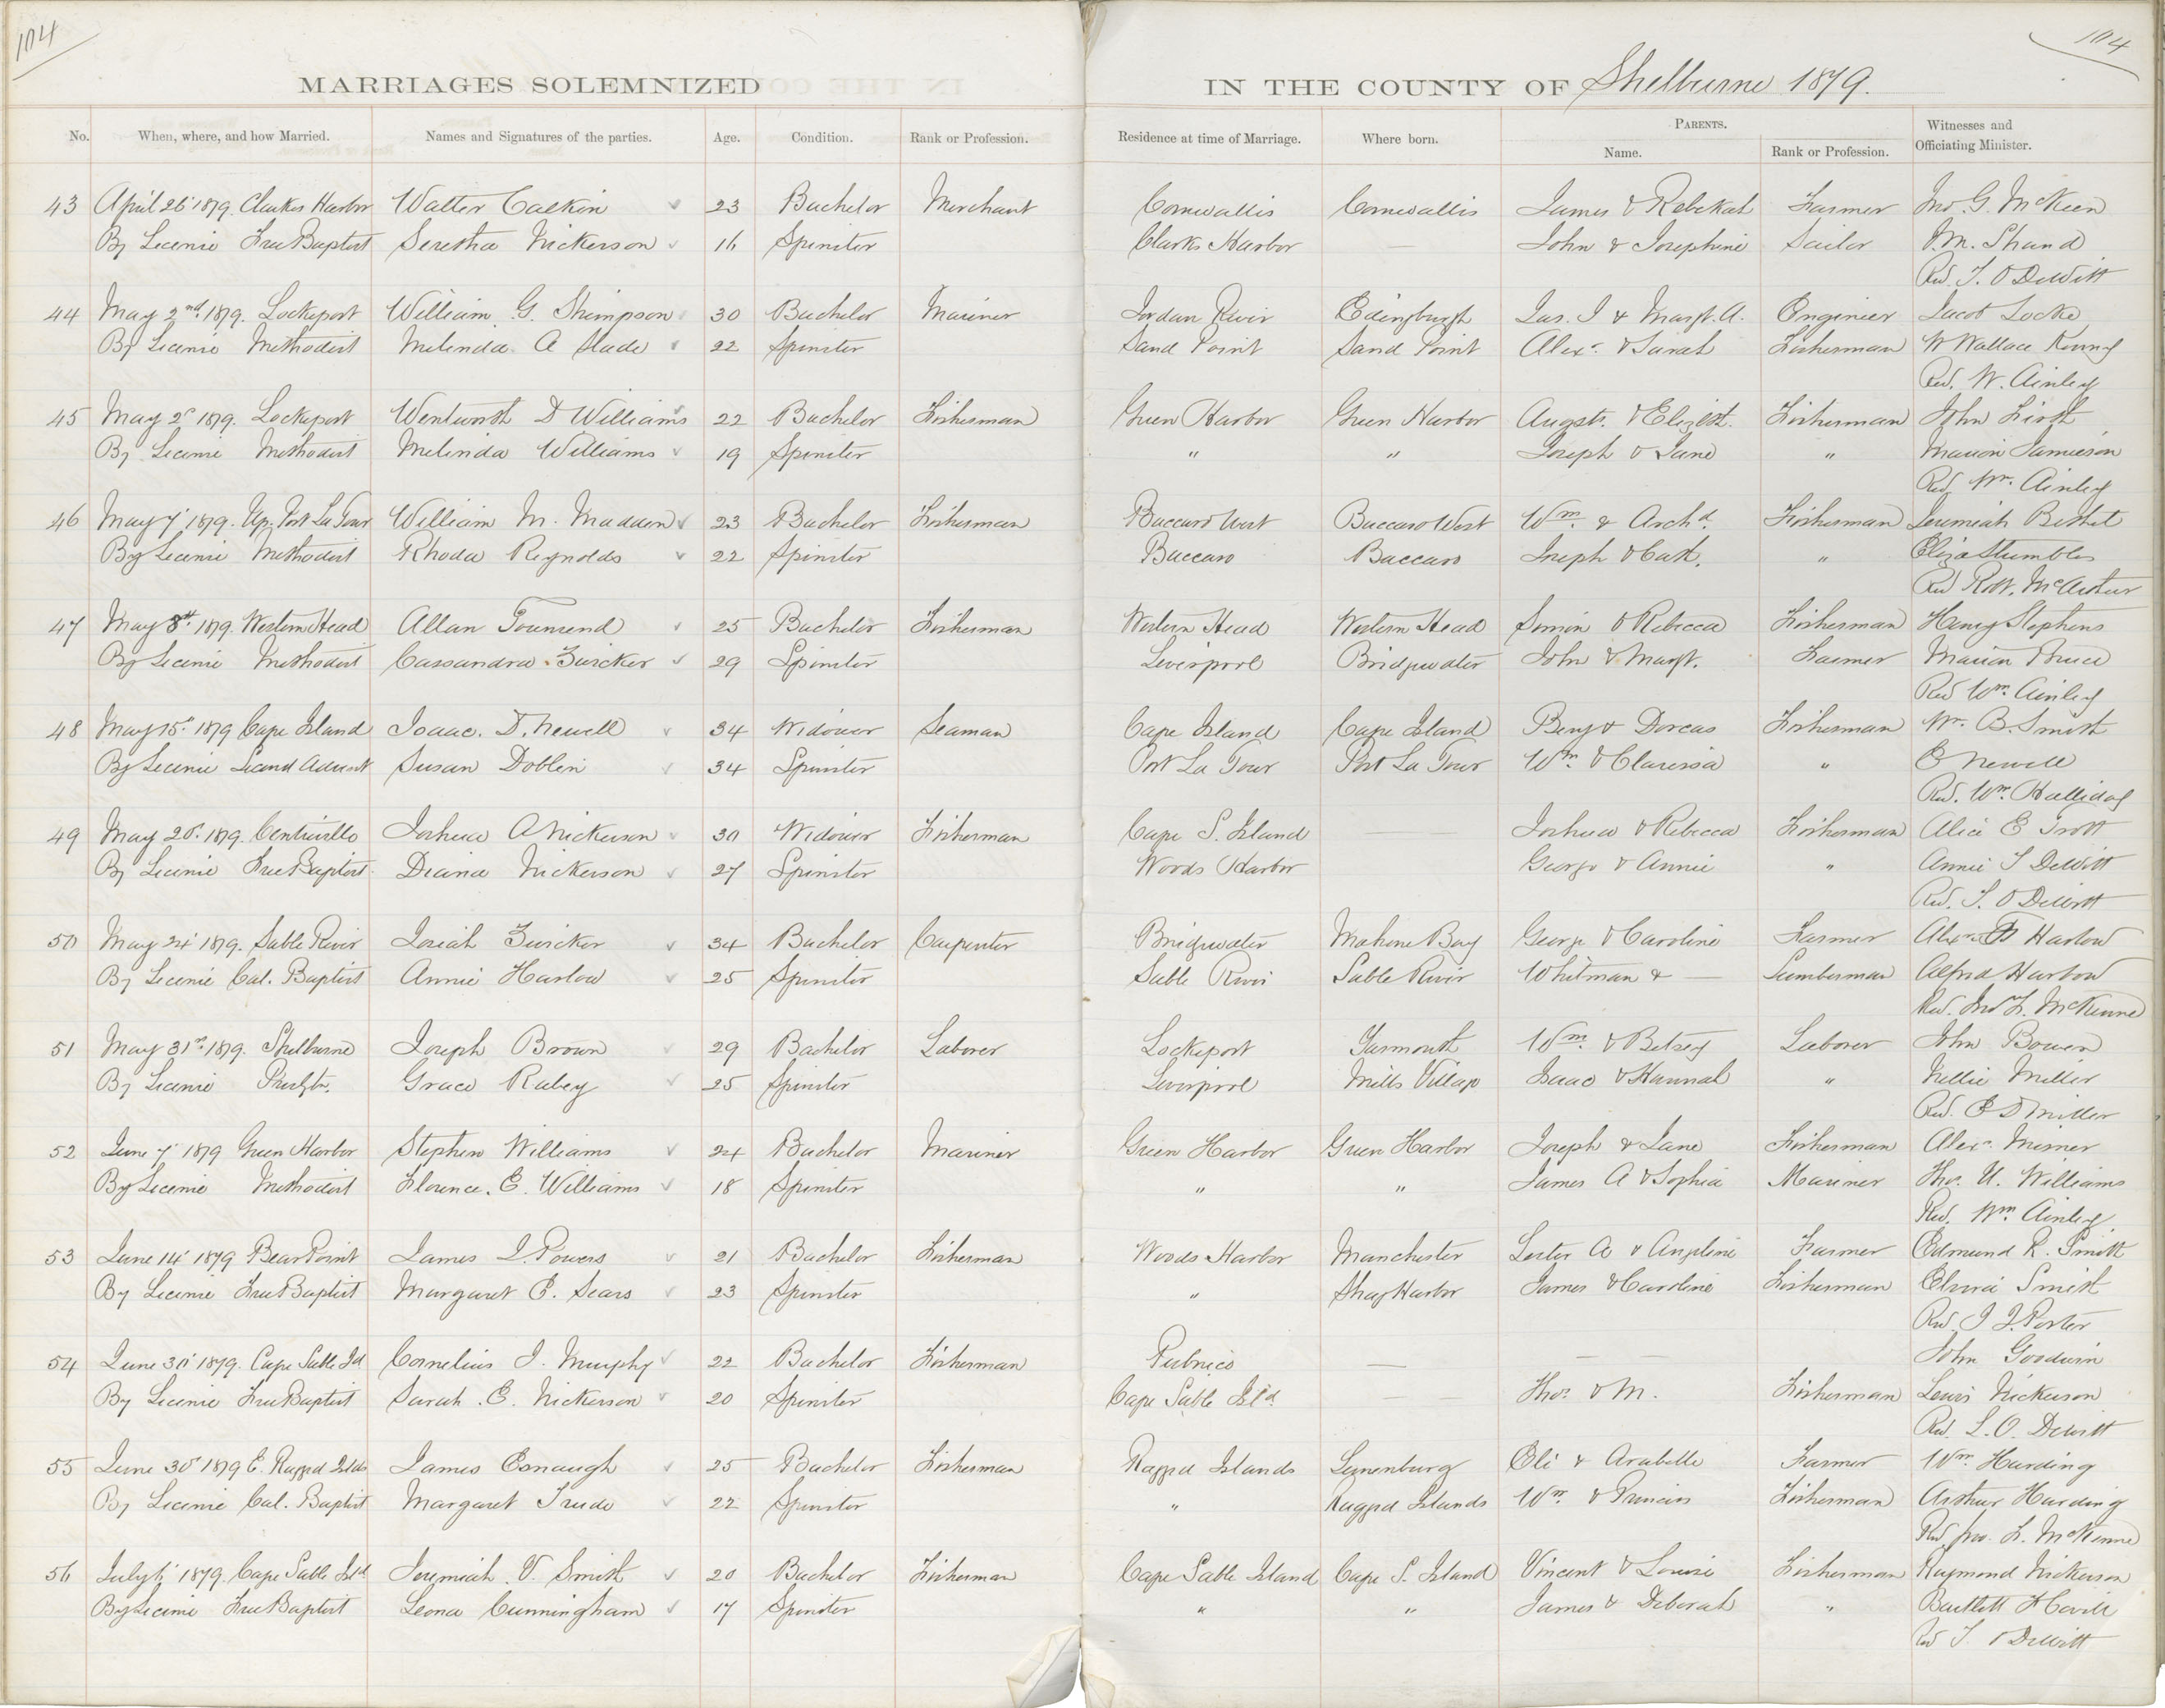 104
104
MARRIAGES SOLEMNIZED IN THE COUNTY OF Shelburne 1879.
No. When, where, and how Married. Names and Signatures of the parties. Age. Condition. Rank or Profession. Residence at time of Marriage. Where born. PARENTS. Name. Rank or Profession. Witnesses and Officiating Minister.
43 April 26 1879. Clarkes Harbor Walter Calkin 23 Bachelor Merchant Cornwallis Cornwallis James & Rebekah Farmer Jno. G. McKeen
By License Free Baptist Seretha Nickerson 16 Spinster Clarks Harbor — John & Josephine Sailor P. M. Shand
Rev. T. O DeWitt
44 May 2nd 1879. Lockeport William G. Shimpson 30 Bachelor Mariner Jordan River Edingburgh Jas. I & Margt. A. Engineer Jacob Locke
By License Methodist Melinda A Slade 22 Spinster Sand Point Sand Point Alexr. & Sarah Fisherman W Wallace Kenny
Rev. W. Ainley
45 May 2d 1879. Lockeport Wentworth D Williams 22 Bachelor Fisherman Green Harbor Green Harbor Augst. & Elizbt. Fisherman John Firth
By License Methodist Melinda Williams 19 Spinster " " Joseph & Jane " Marion Jamieson
Rev Wm. Ainley
46 May 7 1879. Up. Port La Tour William M. Madden 23 Bachelor Fisherman Baccaro West Baccaro West Wm. & Archd. Fisherman Jeremiah Bethel
By License Methodist Rhoda Reynolds 22 Spinster Baccaro Baccaro Joseph & Cath. " Eliza Stumbles
Rev Robt. McArthur
47 May 8th 1879. Western Head Allan Townsend 25 Bachelor Fisherman Western Head Western Head Simon & Rebecca Fisherman Henry Stephens
By License Methodist Cassandra Zwicker 29 Spinster Liverpool Bridgwater John & Margt. Farmer Marion Bruce
Rev Wm. Ainley
48 May 15th 1879 Cape Island Isaac. D. Newell 34 Widower Seaman Cape Island Cape Island Benj & Dorcas Fisherman Wm. B. Smith
By License Second Advent Susan Doblin 34 Spinster Port La Tour Port La Tour Wm. & Clarissa " E Newell
Rev. Wm. Halliday
49 May 20. 1879. Centreville Joshua A Nickerson 30 Widower Fisherman Cape S. Island — Joshua & Rebecca Fisherman Alice E Trott
By License Free Baptist Diana Nickerson 27 Spinster Woods Harbor George & Annie " Annie T DeWitt
Rev. T. O DeWitt
50 May 24 1879. Sable River Josiah Zwicker 34 Bachelor Carpenter Bridgwater Mahone Bay George & Caroline Farmer Harlow
By License Cal. Baptist Annie Harlow 25 Spinster Sable River Sable River Whitman & — Lumberman Alfred Harlow
Rev. Jno L. McKenne
51 May 31st 1879. Shelburne Joseph Brown 29 Bachelor Laborer Lockeport Yarmouth Wm. & Betsey Laborer John Bower
By License Presbytn. Grace Rabey 25 Spinster Liverpool Mills Village Isaac & Hannah " Nellie Miller
Rev. E D Miller
52 June 7 1879 Green Harbor Stephen Williams 24 Bachelor Mariner Green Harbor Green Harbor Joseph & Jane Fisherman Alexr. Misner
By License Methodist Florence. E. Williams 18 Spinster " " James A & Sophia Mariner Thos. U. Williams
Rev. Wm Ainley
53 June 14 1879 Bear Point James L. Powers 21 Bachelor Fisherman Woods Harbor Manchester Lester A & Angeline Farmer Edmund R. Smith
By License Free Baptist Margaret E. Sears 23 Spinster " Shag Harbor James & Caroline Fisherman Elvira Smith
Rev. J. I. Porter
54 June 30 1879. Cape Sable Id Cornelius J. Murphy 22 Bachelor Fisherman Pubnico — — — John Goodwin
By License Free Baptist Sarah. E. Nickerson 20 Spinster Cape Sable Isld. — — Thos. & M. Fisherman Lewis Nickerson
Rev. T. O. DeWitt
55 June 30 1879 E. Ragged Islds James Conaugh 25 Bachelor Fisherman Ragged Islands Lunenburg Eli & Arabelle Farmer Wm. Harding
By License Cal. Baptist Margaret Trude 22 Spinster " Ragged Islands Wm. & Fisherman Arthur Harding
Rev Jno. L. McKenne
56 July 6 1879. Cape Sable Isld Jeremiah. V. Smith 20 Bachelor Fisherman Cape Sable Island Cape S. Island Vincent & Louise Fisherman Raymond Nickerson
By License Free Baptist Leona Cunningham 17 Spinster " " James & Deborah " Bartlett
Rev T. O DeWitt